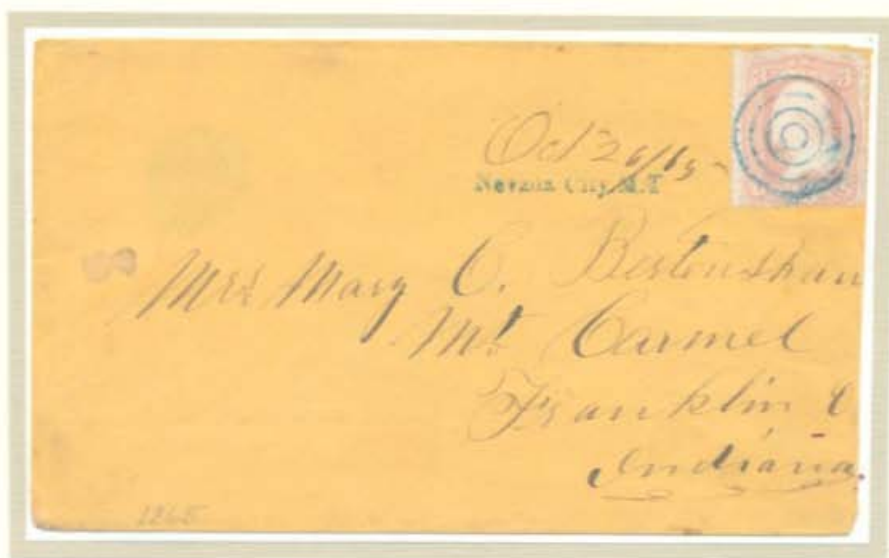 3 3
Oct 26/65
Nevada City, M.T
Mrs Mary C. Bertenshaw
Mt Carmel
Franklin C
Indiana.
1865